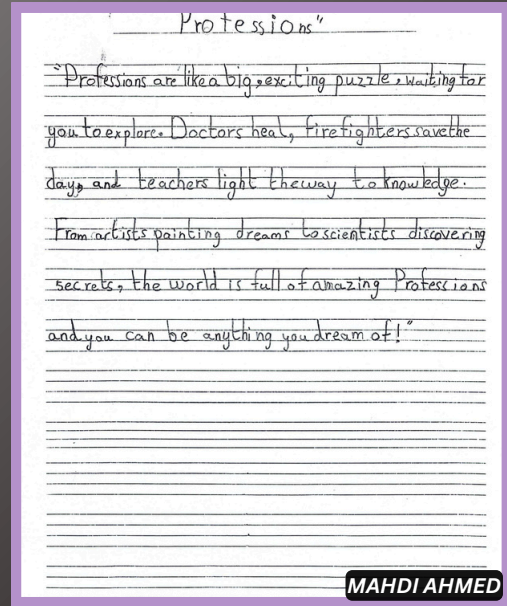 Professions"
"Professions are like a big, exciting puzzle, waiting for
you to explore. Doctors heal, firefighters save the
day, and teachers light the way to knowledge.
From artists painting dreams to scientists discovering
secrets, the world is full of amazing Professions
and you can be anything you dream of!"
MAHDI AHMED